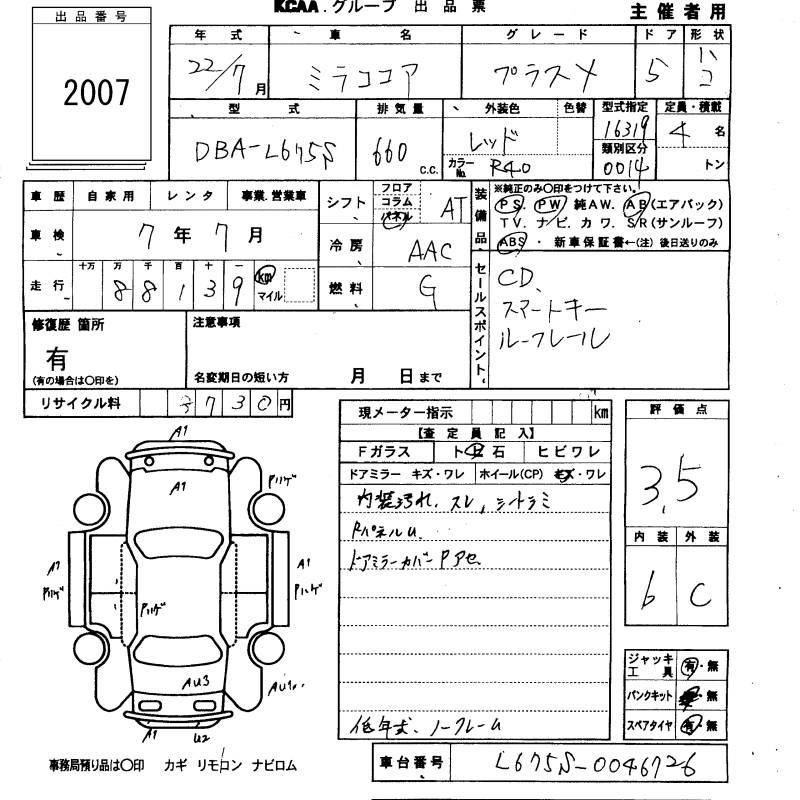 KCAA.グループ 出 品 票
主催者用
出品番号
2007
年式 車名 グレード ドア 形状
22/7月 ミラココア プラスX 5 ハコ
型式 排気量 外装色 色替 型式指定 定員・積載
DBA-L675S 660 c.c. レッド 16319 4 名
カラーNo. R40 類別区分 0014 トン
車歴 自家用 レンタ 事業.営業車
車検 7年7月
走行 十万 万 千 百 十 一
88139 km マイル
シフト フロア コラム パネル AT
冷房 AAC
燃料 G
装備品 ※純正のみ〇印をつけて下さい。
PS. PW 純AW. AB(エアバック)
TV. ナビ. カワ. S/R(サンルーフ)
ABS・新車保証書←(注)後日送りのみ
セールスポイント
CD.
スマートキー
ルーフレール
修復歴 箇所
有
(有の場合は〇印を)
注意事項
名変期日の短い方 月 日まで
リサイクル料 7730円
現メーター指示 km
【査定員記入】
Fガラス ト 石 ヒビワレ
ドアミラー キズ・ワレ ホイール(CP) キズ・ワレ
内装汚れ. スレ, シートラミ
RパネルU.
ドアミラーカバーPアセ
低年式. ノークレーム
評価点
3.5
内装 外装
6 C
ジャッキ工具 有・無
パンクキット 無
スペアタイヤ 有・無
A1
A1
Pハゲ
A1
Pハゲ
Pハゲ
A1
Pハゲ
AU3
A1
U2
事務局預り品は〇印 カギ リモコン ナビロム
車台番号 L675S-0046726